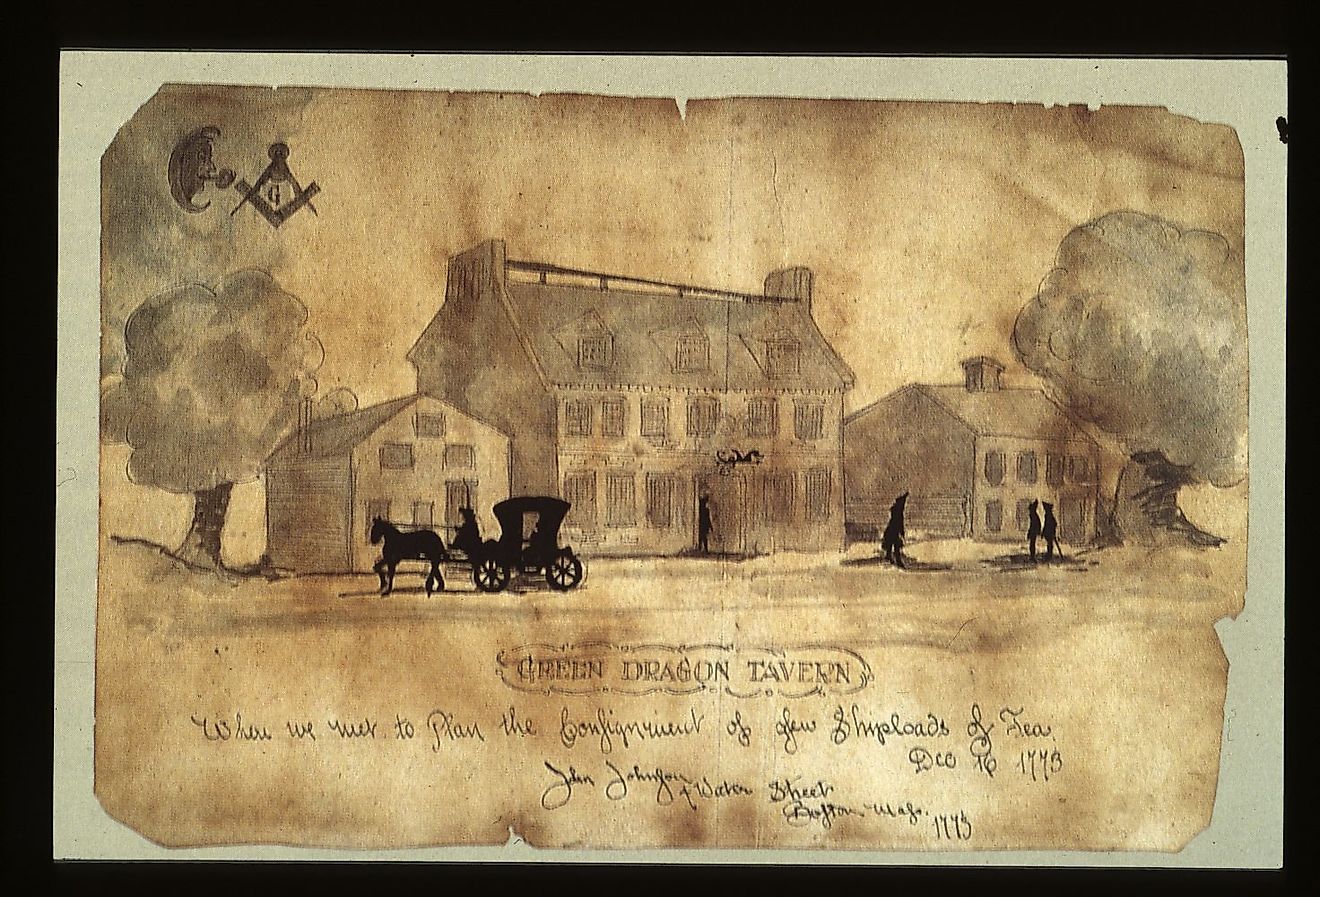 G
GREEN DRAGON TAVERN
When we met to Plan the Consignment of few Shiploads of Tea.
Dec 16 1773
John Johnson
Water Street
Boston Mass. 1773